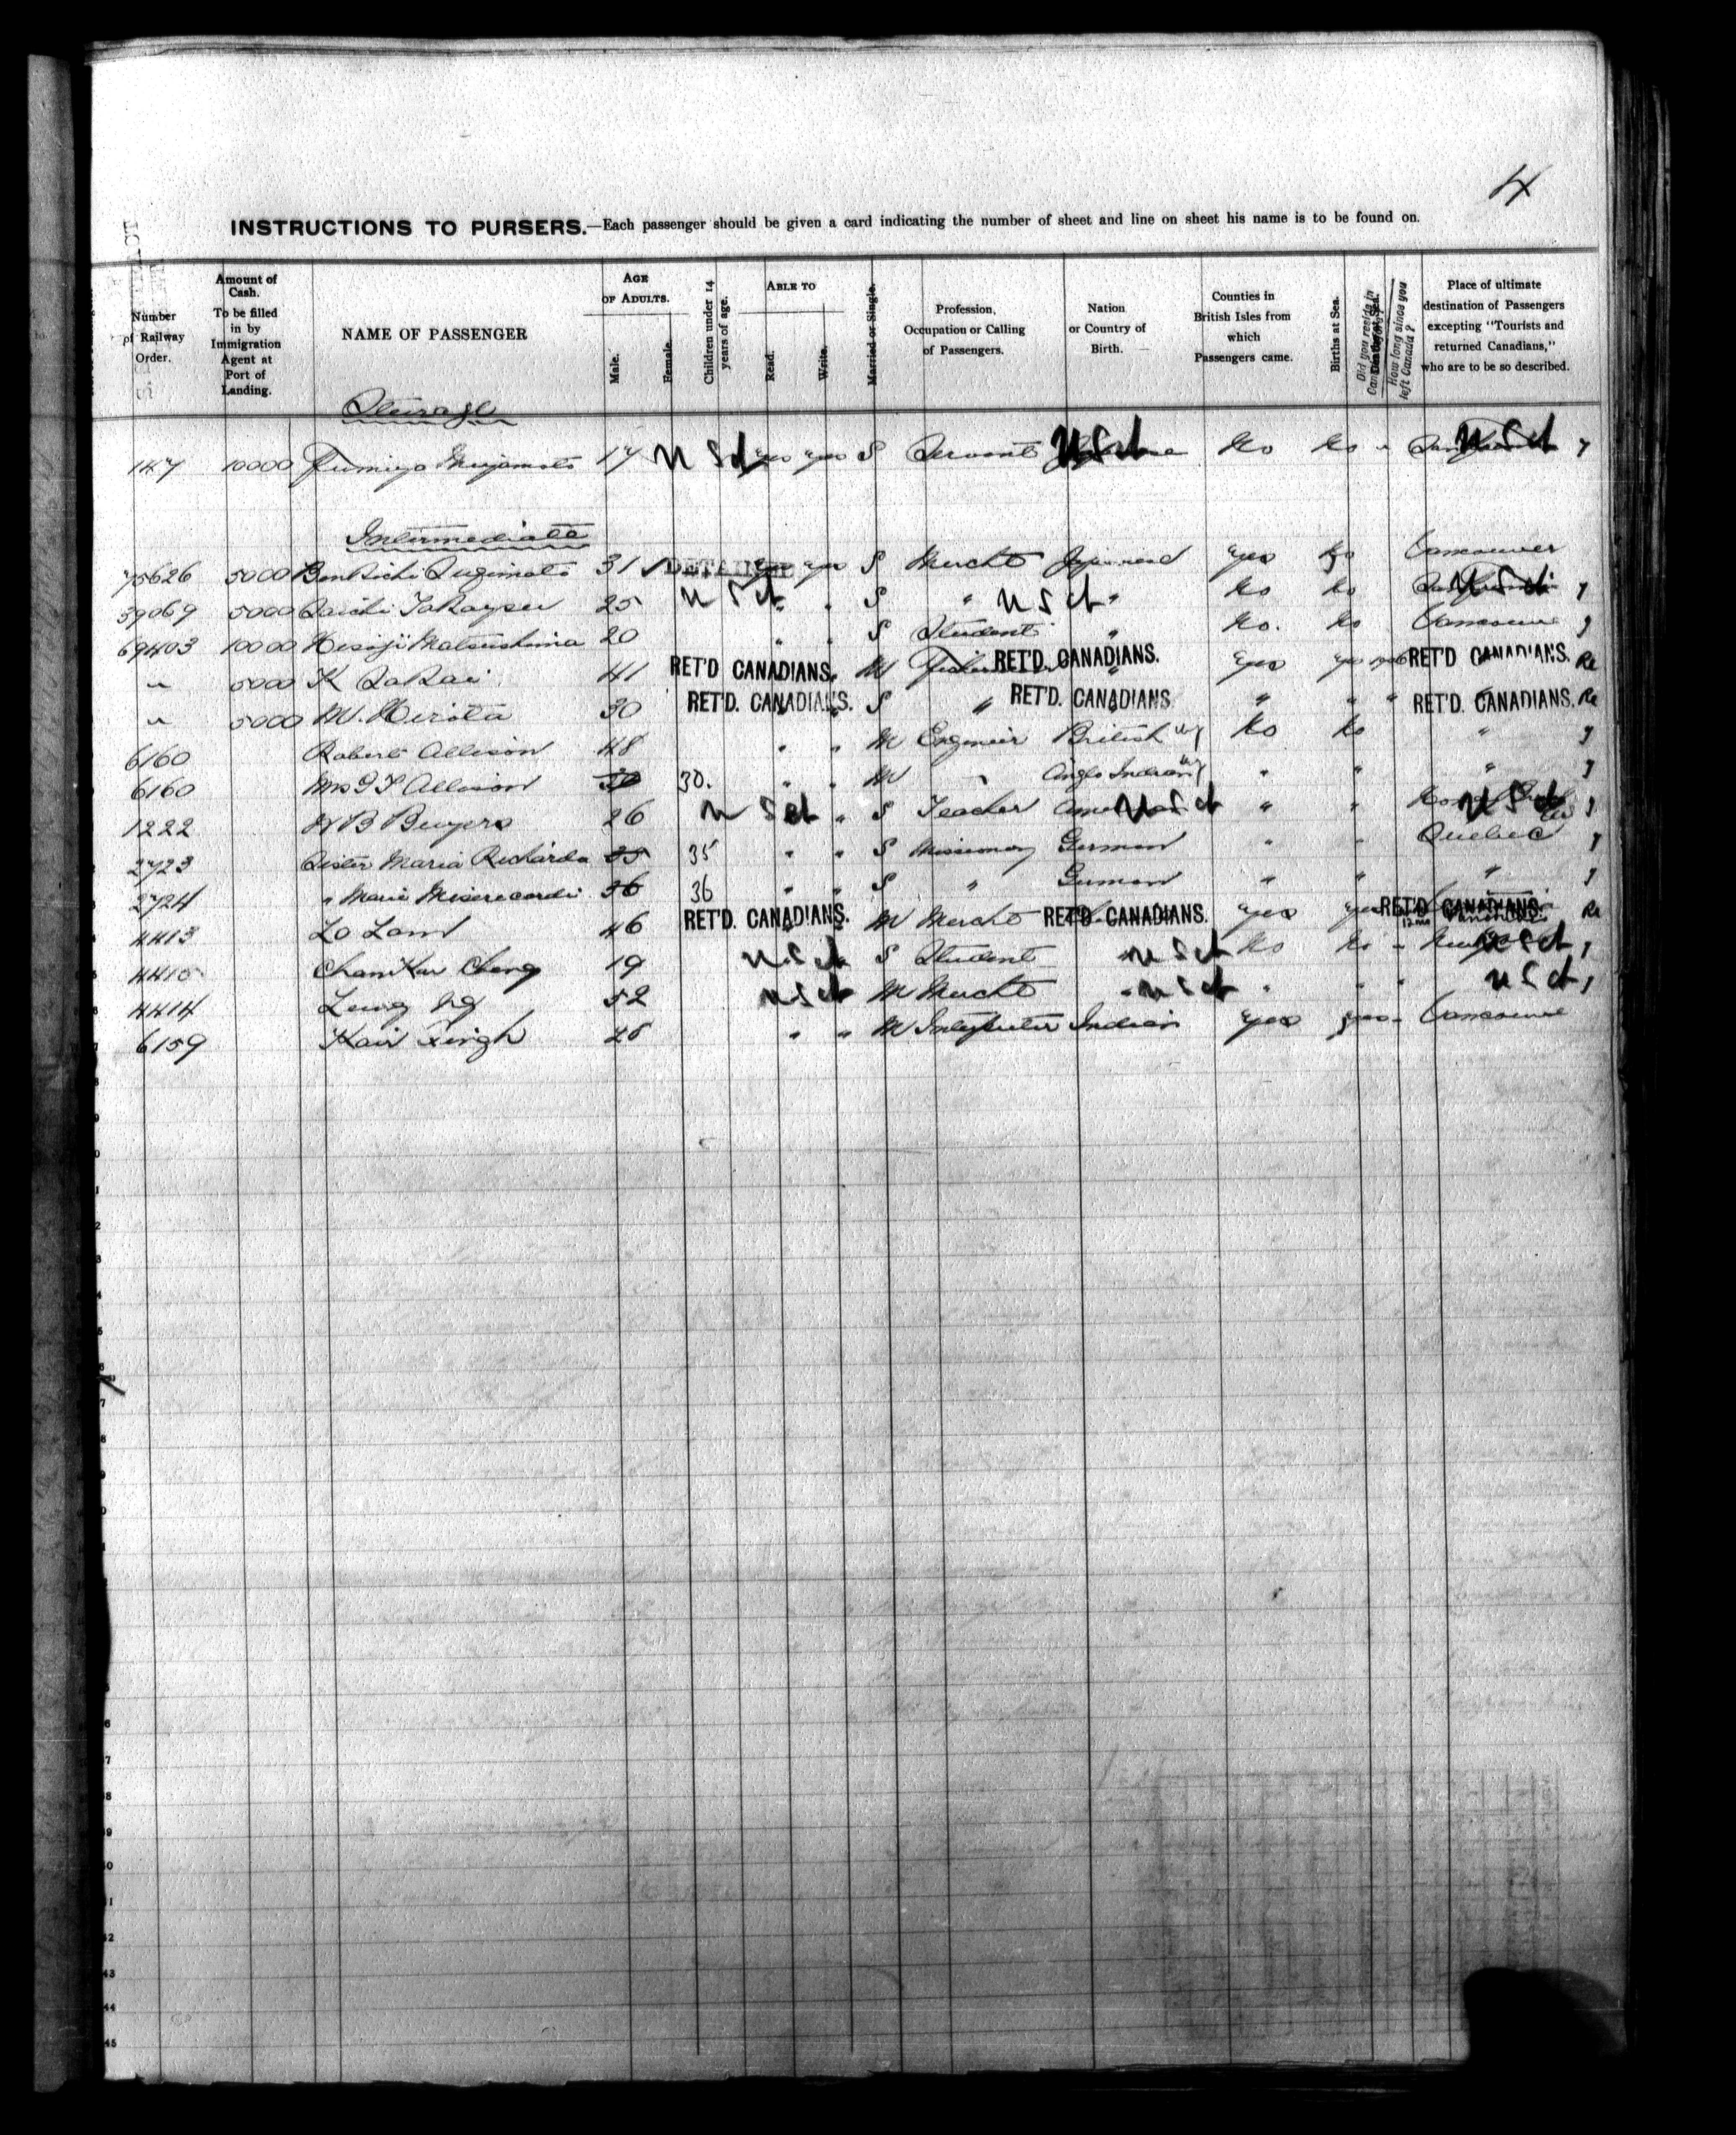 4
INSTRUCTIONS TO PURSERS.—Each passenger should be given a card indicating the number of sheet and line on sheet his name is to be found on.
Number of Railway Order.
Amount of Cash. To be filled in by Immigration Agent at Port of Landing.
NAME OF PASSENGER
AGE OF ADULTS.
Male.
Female.
Children under 14 years of age.
ABLE TO
Read.
Write.
Married or Single.
Profession, Occupation or Calling of Passengers.
Nation or Country of Birth.
Counties in British Isles from which Passengers came.
Births at Sea.
Did you reside in
How long since you left Canada?
Place of ultimate destination of Passengers excepting "Tourists and returned Canadians," who are to be so described.
Steerage
147 10000 Fumiyo Miyamoto 17 U S ct yes yes S Servant U S ct No No U S ct
Intermediate
75626 5000 Benkichi Sugimoto 31 DETAINED yes yes S Mercht Japanese yes No Vancouver
39069 5000 Saichi Takayasu 25 U S ct " S " U S ct " No No U S ct
69403 10000 Hisoji Matsushima 20 " " S Student " No. No Vancouver
" 5000 K Sakai 41 RET'D CANADIANS. M RET'D. CANADIANS. yes yes RET'D CANADIANS. Re
" 5000 M. Hirota 30 RET'D. CANADIANS. S " RET'D. CANADIANS " " " RET'D. CANADIANS. Re
6160 Robert Allison 48 " " M Engineer British No No "
6160 Mrs Allison 30 30. " " M " Anglo Indian " " "
1222 H B Beuyers 26 U S ct " S Teacher U S ct " " U S ct
2723 Sister Maria Richarda 35 35 " " S Missionary German " " Quebec
2724 " Maria Misericordi 36 36 " " S " German " " "
4413 Lo Lam 46 RET'D. CANADIANS. M Mercht RET'D CANADIANS. yes yes 12 mo RET'D CANADIANS. Re
4415 Chan Kar Cheng 19 U S ct S Student U S ct No No " U S ct
4414 Leung Ng 52 U S ct M Mercht " U S ct " " " U S ct
6159 Hair Singh 28 " " M Interpreter Indian yes yes Vancouver